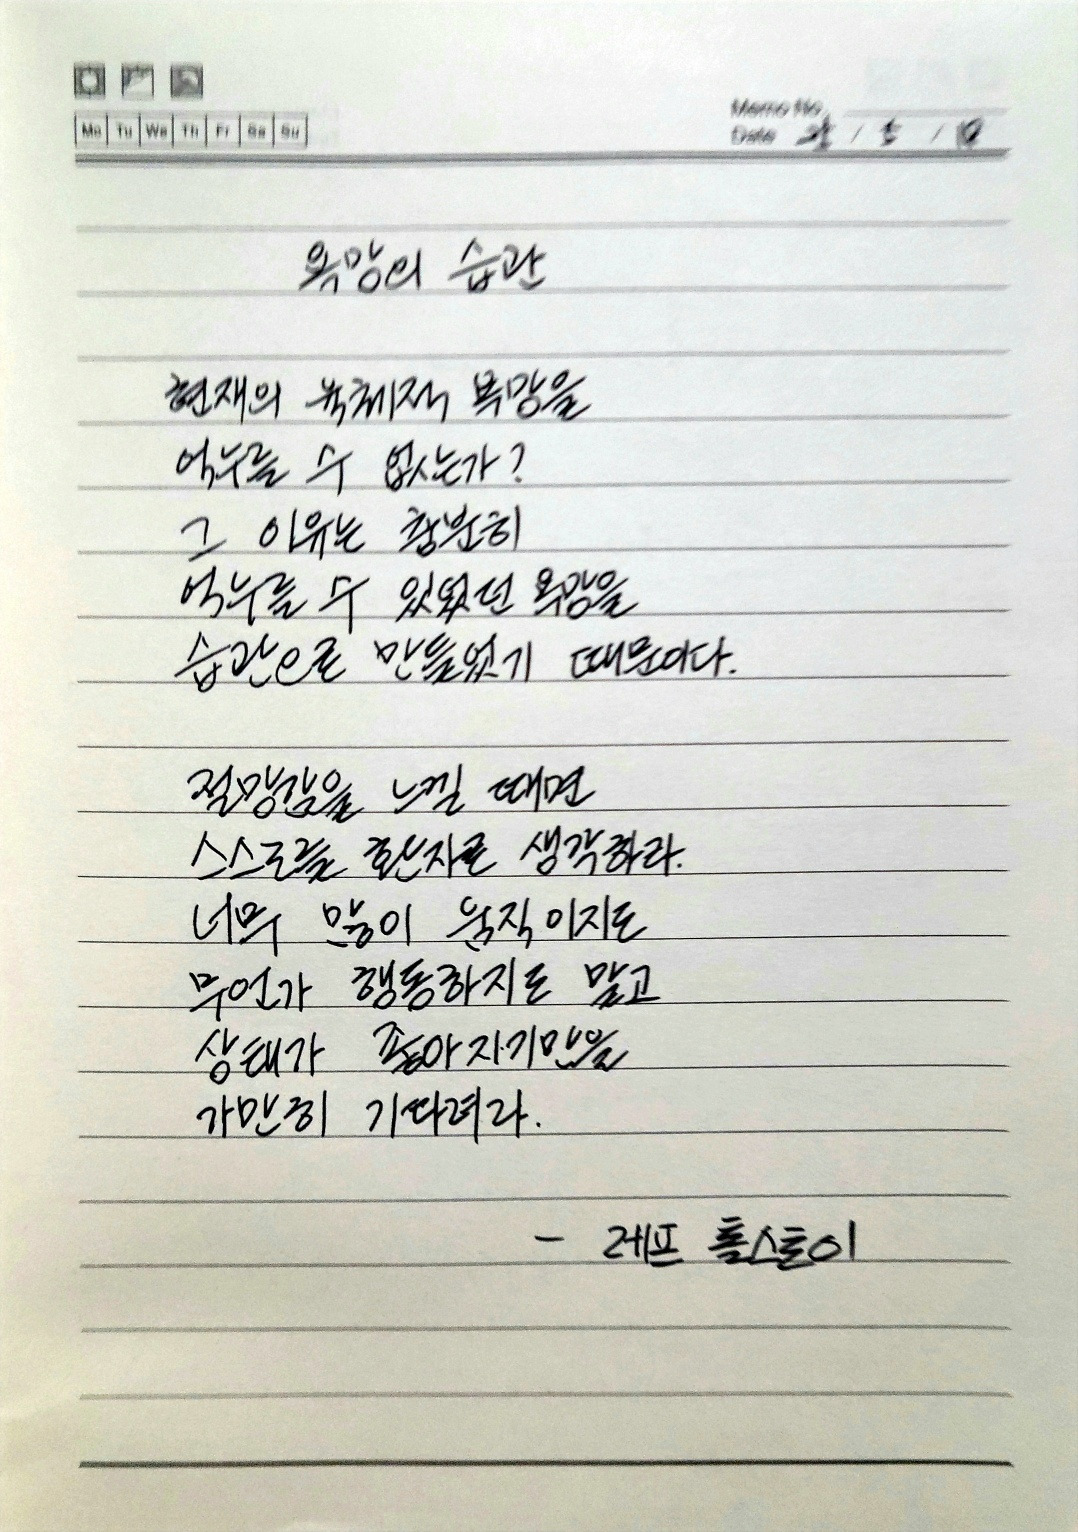 Mo Tu We Th Fr Sa Su
Memo No.
Date / 5 / 10
욕망의 습관
현재의 육체적 욕망을
억누를 수 없는가?
그 이유는 충분히
억누를 수 있었던 욕망을
습관으로 만들었기 때문이다.
절망감을 느낄 때면
스스로를 환자로 생각하라.
너무 많이 움직이지도
무언가 행동하지도 말고
상태가 좋아지기만을
가만히 기다려라.
- 레프 톨스토이